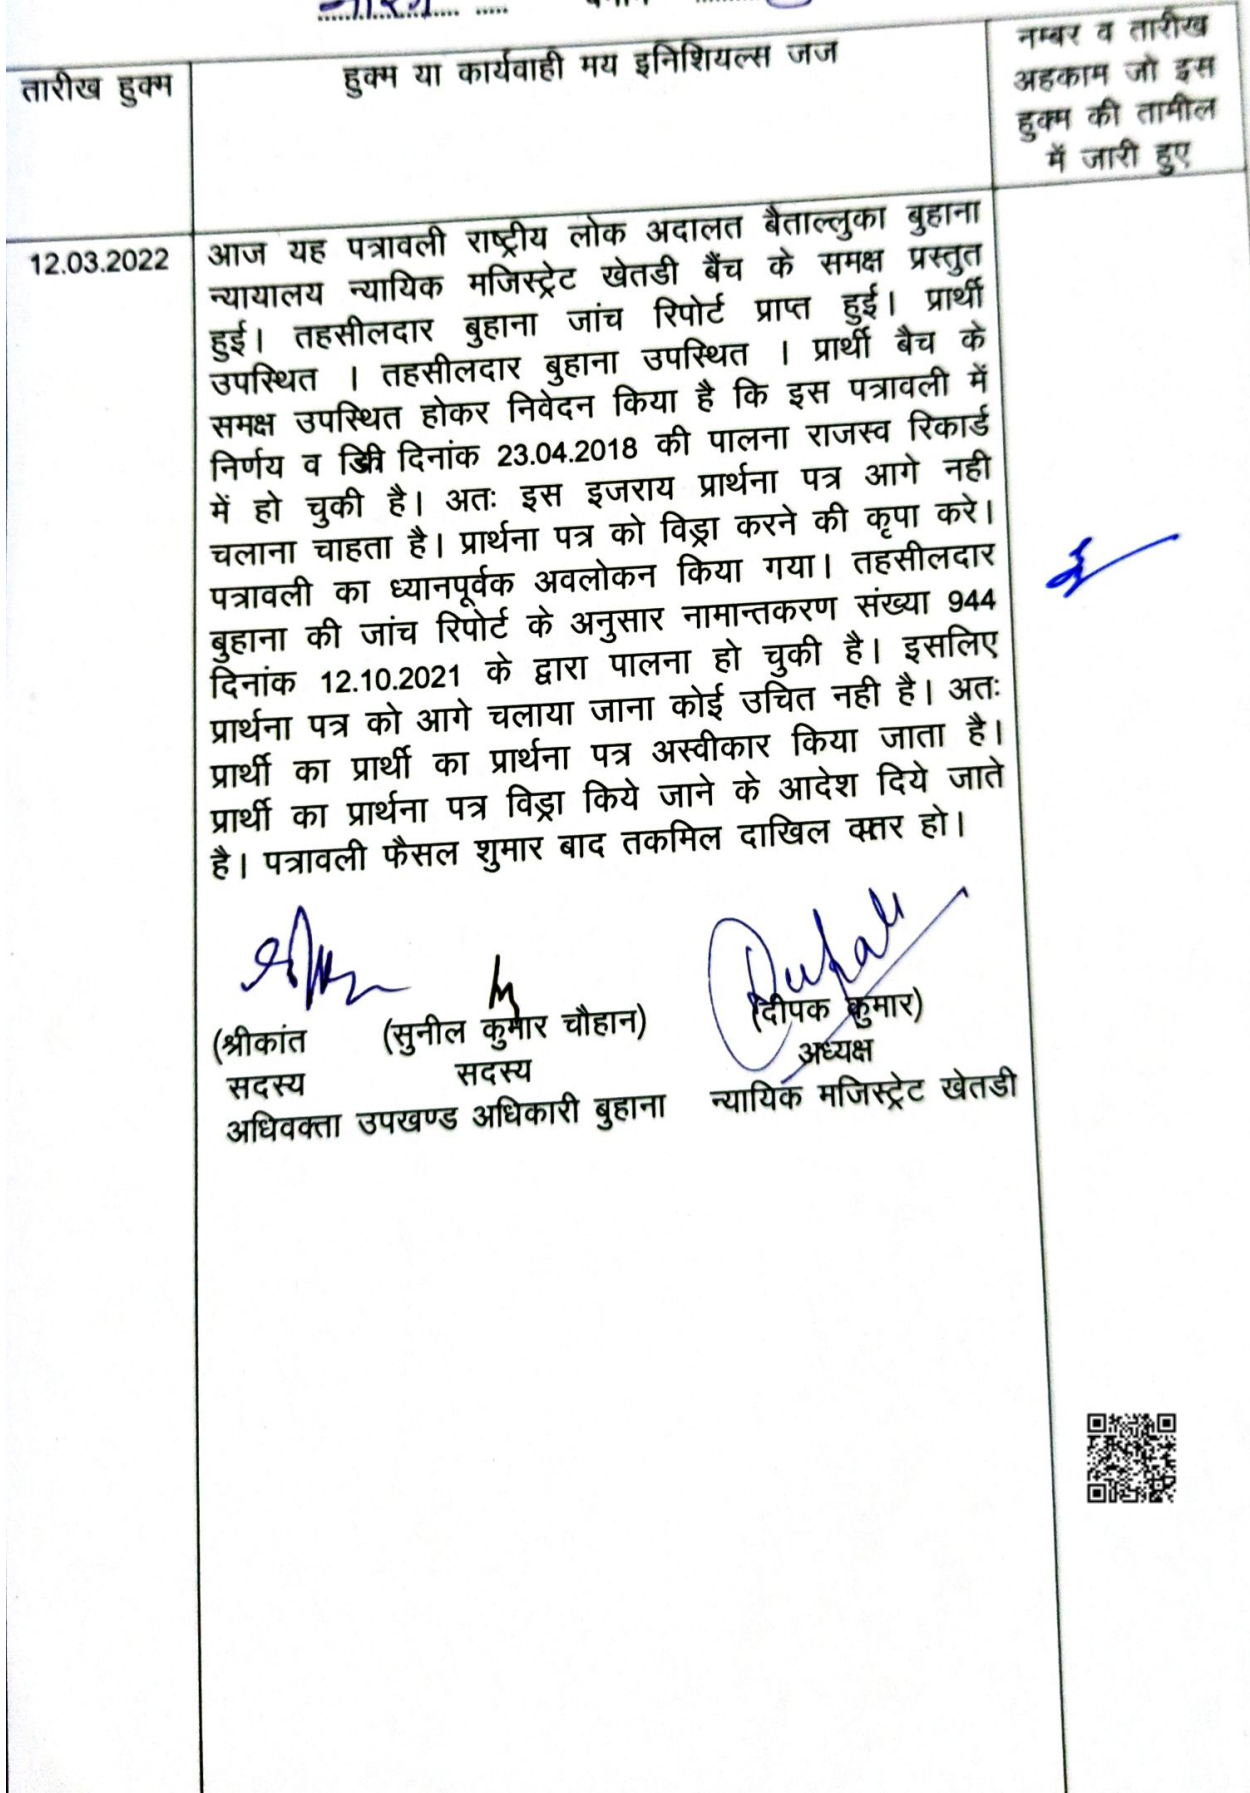 तारीख हुक्म
हुक्म या कार्यवाही मय इनिशियल्स जज
नम्बर व तारीख
अहकाम जो इस
हुक्म की तामील
में जारी हुए
12.03.2022
आज यह पत्रावली राष्ट्रीय लोक अदालत बैताल्लुका बुहाना
न्यायालय न्यायिक मजिस्ट्रेट खेतडी बैंच के समक्ष प्रस्तुत
हुई। तहसीलदार बुहाना जांच रिपोर्ट प्राप्त हुई। प्रार्थी
उपस्थित । तहसीलदार बुहाना उपस्थित । प्रार्थी बैच के
समक्ष उपस्थित होकर निवेदन किया है कि इस पत्रावली में
निर्णय व डिक्री दिनांक 23.04.2018 की पालना राजस्व रिकार्ड
में हो चुकी है। अतः इस इजराय प्रार्थना पत्र आगे नही
चलाना चाहता है। प्रार्थना पत्र को विड्रा करने की कृपा करे।
पत्रावली का ध्यानपूर्वक अवलोकन किया गया। तहसीलदार
बुहाना की जांच रिपोर्ट के अनुसार नामान्तकरण संख्या 944
दिनांक 12.10.2021 के द्वारा पालना हो चुकी है। इसलिए
प्रार्थना पत्र को आगे चलाया जाना कोई उचित नही है। अतः
प्रार्थी का प्रार्थी का प्रार्थना पत्र अस्वीकार किया जाता है।
प्रार्थी का प्रार्थना पत्र विड्रा किये जाने के आदेश दिये जाते
है। पत्रावली फैसल शुमार बाद तकमिल दाखिल दफ्तर हो।
(श्रीकांत (सुनील कुमार चौहान) (दीपक कुमार)
सदस्य सदस्य अध्यक्ष
अधिवक्ता उपखण्ड अधिकारी बुहाना न्यायिक मजिस्ट्रेट खेतडी